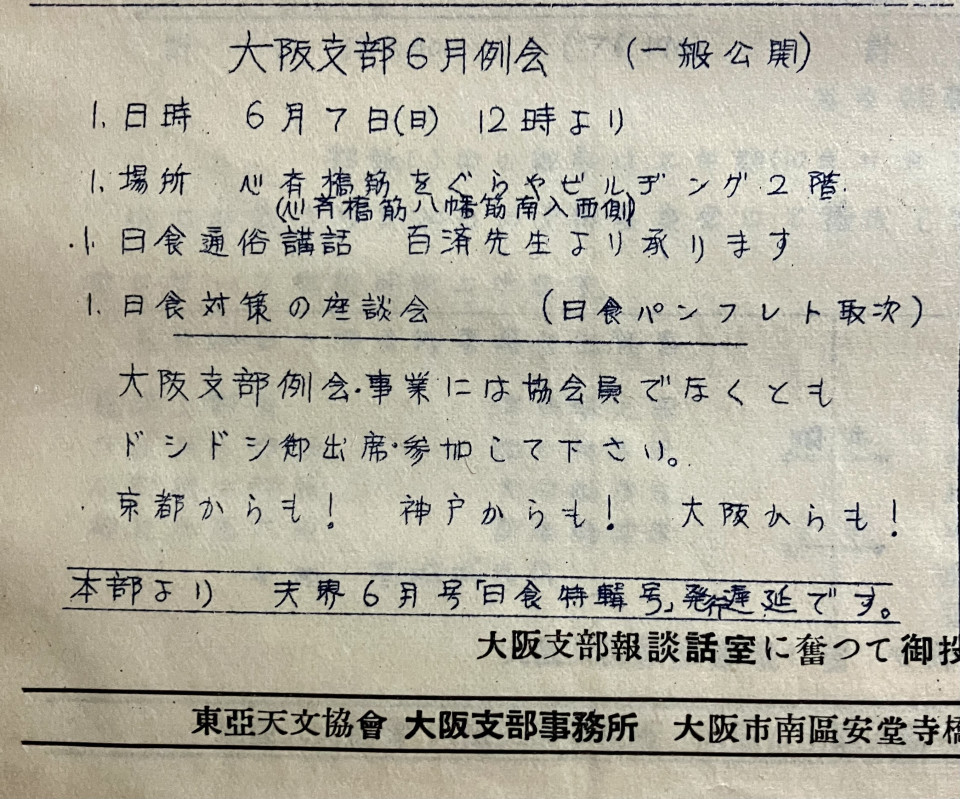 大阪支部6月例会 (一般公開)
1. 日時 6月7日(日) 12時より
1. 場所 心斉橋筋をぐらやビルヂング2階.
(心斉橋筋八幡筋南入西側)
1. 日食通俗講話 百済先生より承ります
1. 日食対策の座談会 (日食パンフレト取次)
大阪支部例会・事業には協会員でなくとも
ドシドシ御出席・参加して下さい。
京都からも! 神戸からも! 大阪からも!
本部より 天界6月号「日食特輯号」発行遅延です。
大阪支部報談話室に奮つて御投
東亞天文協會 大阪支部事務所 大阪市南區安堂寺橋